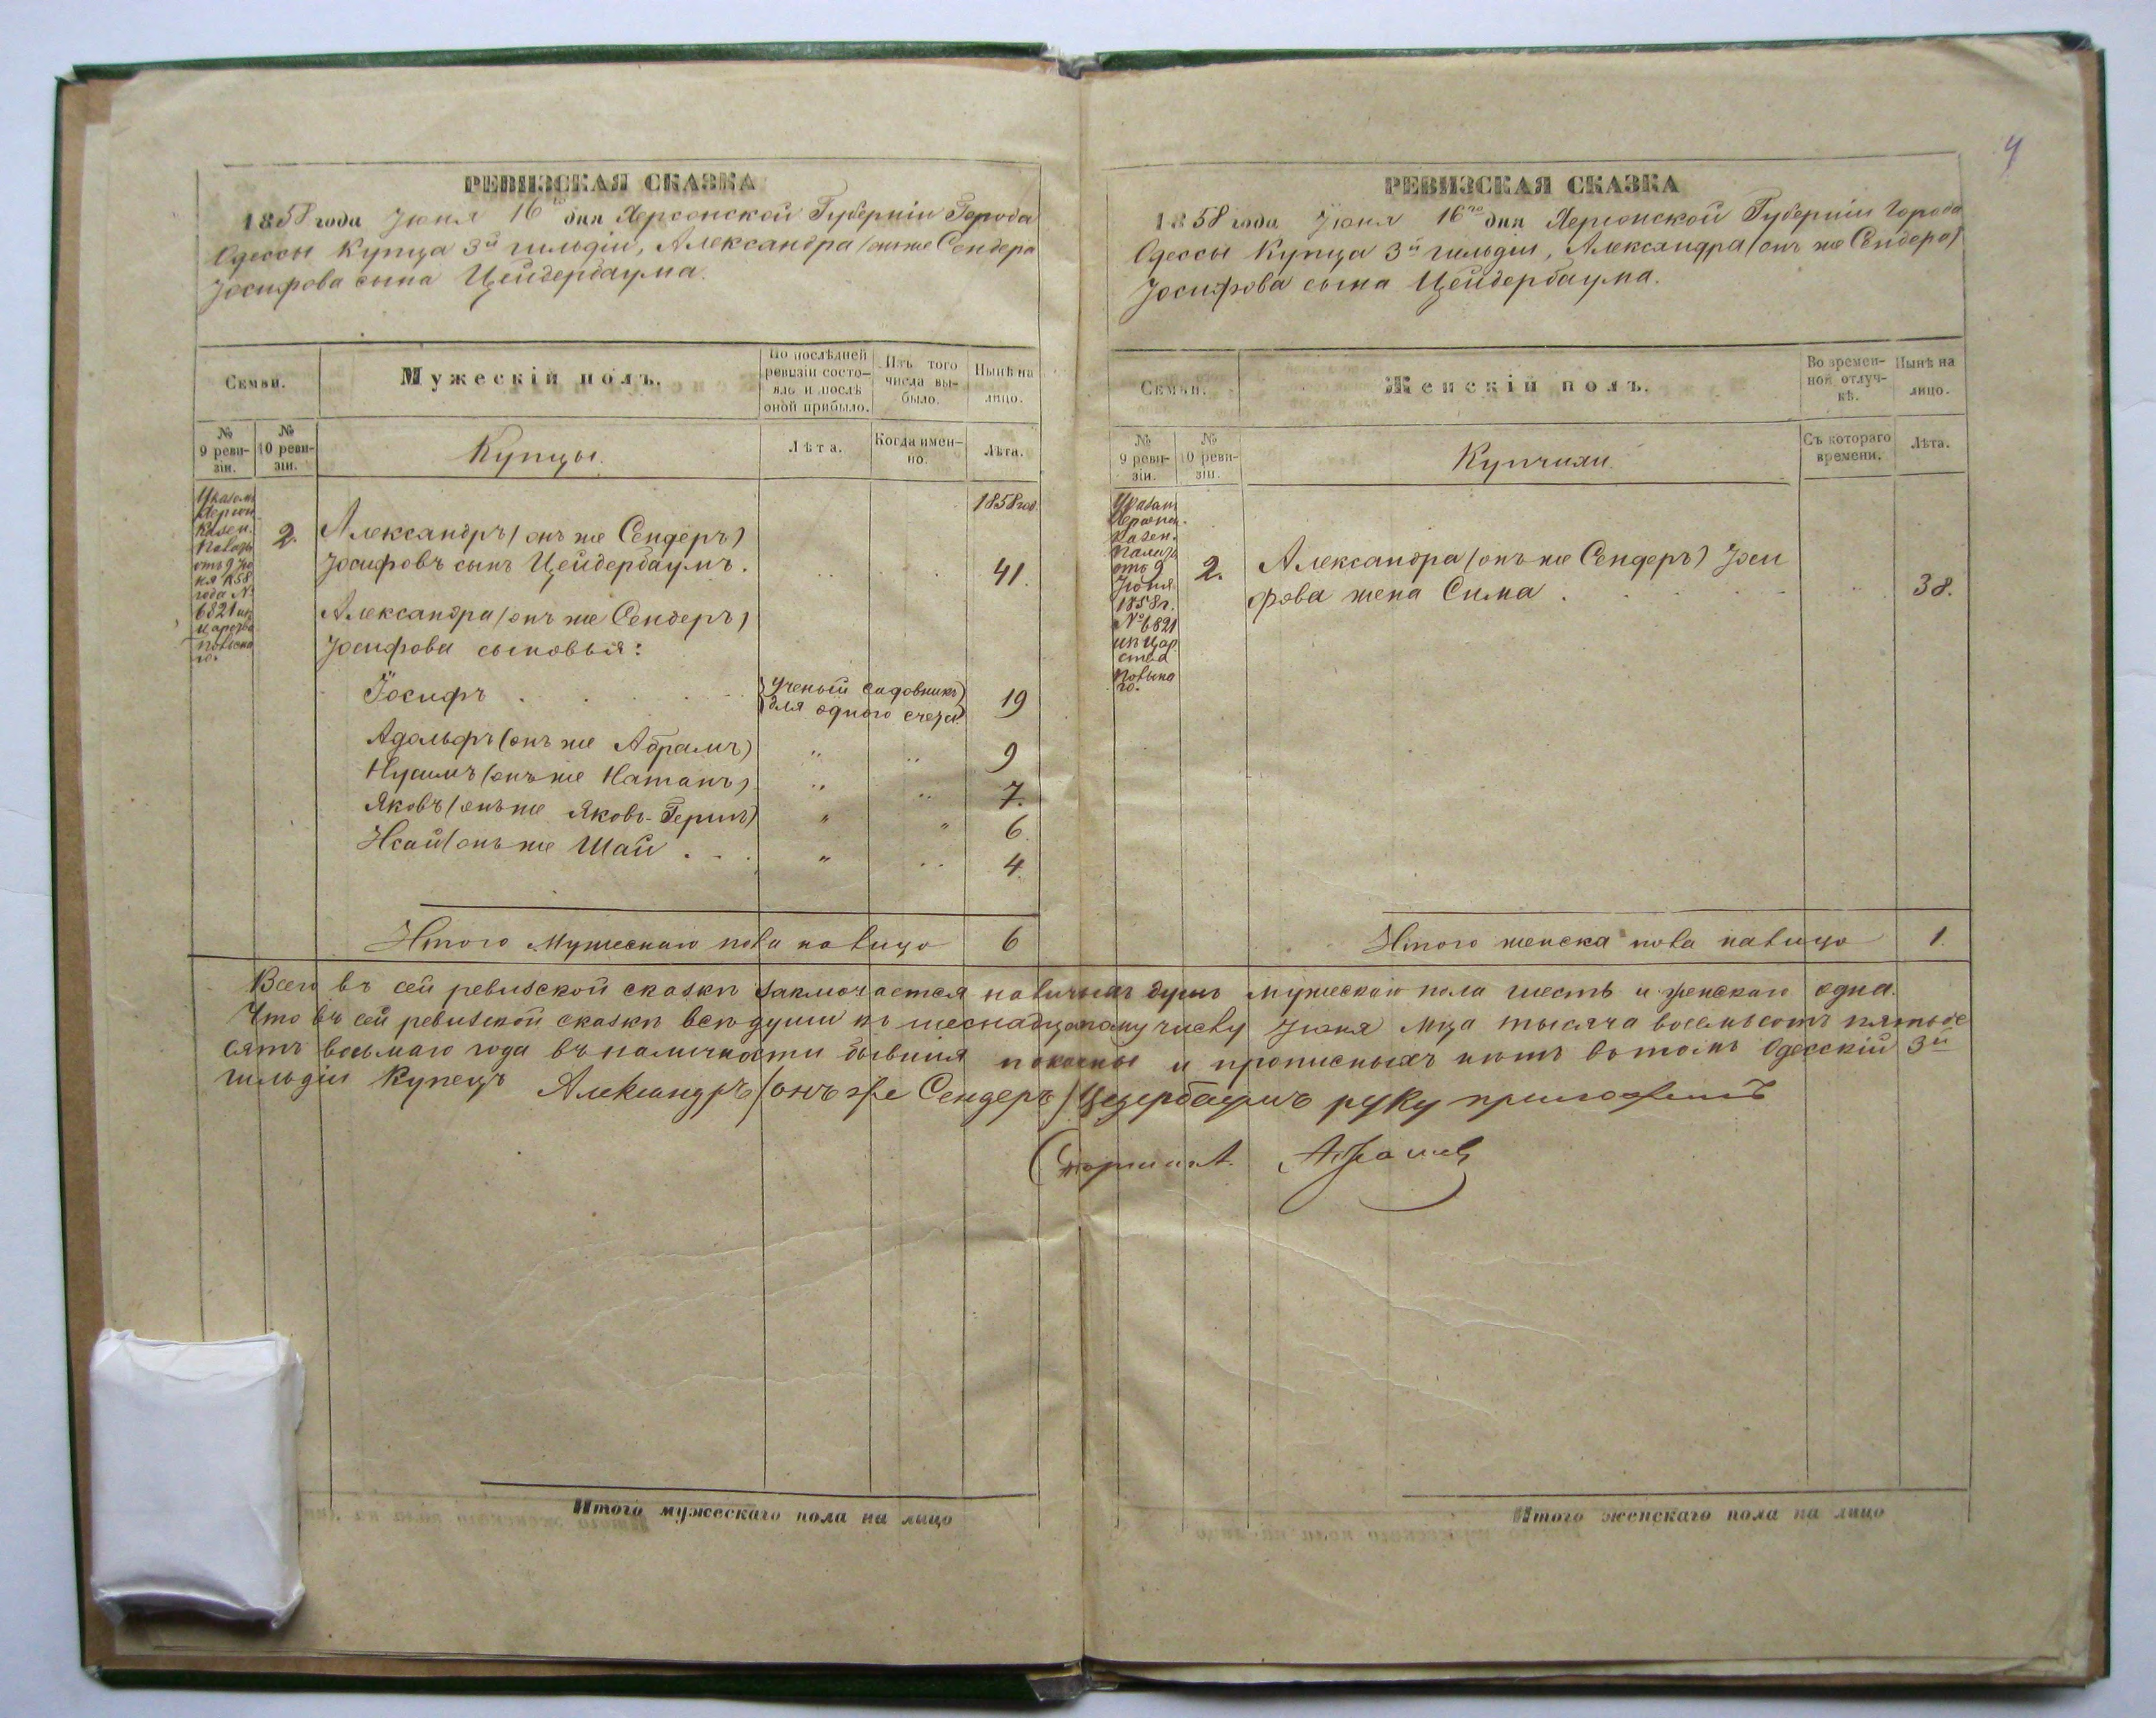 РЕВИЗСКАЯ СКАЗКА
1858 года Іюня 16го дня Херсонской Губерніи Города
Одессы Купца 3й гильдіи, Александра (онъ же Сендера
Іосифова сына Цейдербаума.
Семьи.
Мужескій полъ.
По послѣдней ревизіи состо-
яло и послѣ оной прибыло.
Изъ того числа вы-
было.
Нынѣ на лицо.
№ 9 реви-
зіи.
№ 10 реви-
зіи.
Купцы.
Лѣта.
Когда имен-
но.
Лѣта.
1858 год.
Указомъ
Херсон.
Казен.
Палаты
отъ 9 Ію
ня 1858
года №
6821 из
царства
Польска
го.
2.
Александръ (онъ же Сендеръ)
Іосифовъ сынъ Цейдербаумъ. 41.
Александра (онъ же Сендеръ)
Іосифова сыновья:
Іосифъ . . . {Ученый садовникъ} 19
{для одного счета}
Адольфъ (онъ же Абрамъ) " " 9
Нусимъ (онъ же Натанъ) " " 7.
Яковъ (онъ же Яковъ-Гершъ) " " 6.
Исай (онъ же Шай . . . " " 4
Итого Мужескаго пола на лицо 6
РЕВИЗСКАЯ СКАЗКА
4
1858 года Іюня 16го дня Херсонской Губерніи Города
Одессы Купца 3й гильдіи, Александра (онъ же Сендера)
Іосифова сына Цейдербаума.
Семьи.
Женскій полъ.
Во времен-
ной отлуч-
кѣ.
Нынѣ на лицо.
№ 9 реви-
зіи.
№ 10 реви-
зіи.
Купчихи
Съ котораго времени.
Лѣта.
Указом
Херсон.
Казен.
Палаты
отъ 9
Іюня
1858 г.
№ 6821
из Цар
ства
Польска
го.
2.
Александра (онъ же Сендеръ) Іоси
фова жена Сима . . . 38.
Итого женска пола на лицо 1.
Всего въ сей ревизской сказкѣ заключается наличныхъ душъ мужескаго пола шесть и женскаго одна.
Что въ сей ревизской сказкѣ всѣ души къ шеснадцатому числу Іюня Мца тысяча восемьсотъ пятьде
сятъ восьмаго года въ наличности бывшія показаны и прописныхъ нѣтъ въ томъ Одесскій 3й
гильдіи Купецъ Александръ (онъ же Сендеръ) Цедербаумъ руку приложилъ
Итого мужескаго пола на лицо
Итого женскаго пола на лицо